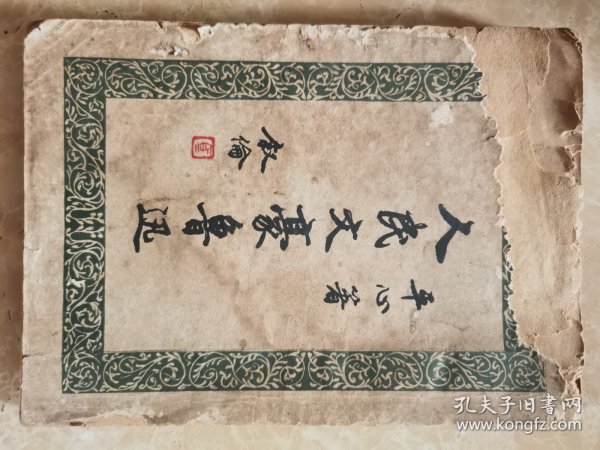 平心著
人民文豪魯迅
敘倫
孔夫子旧書网
www.kongfz.com